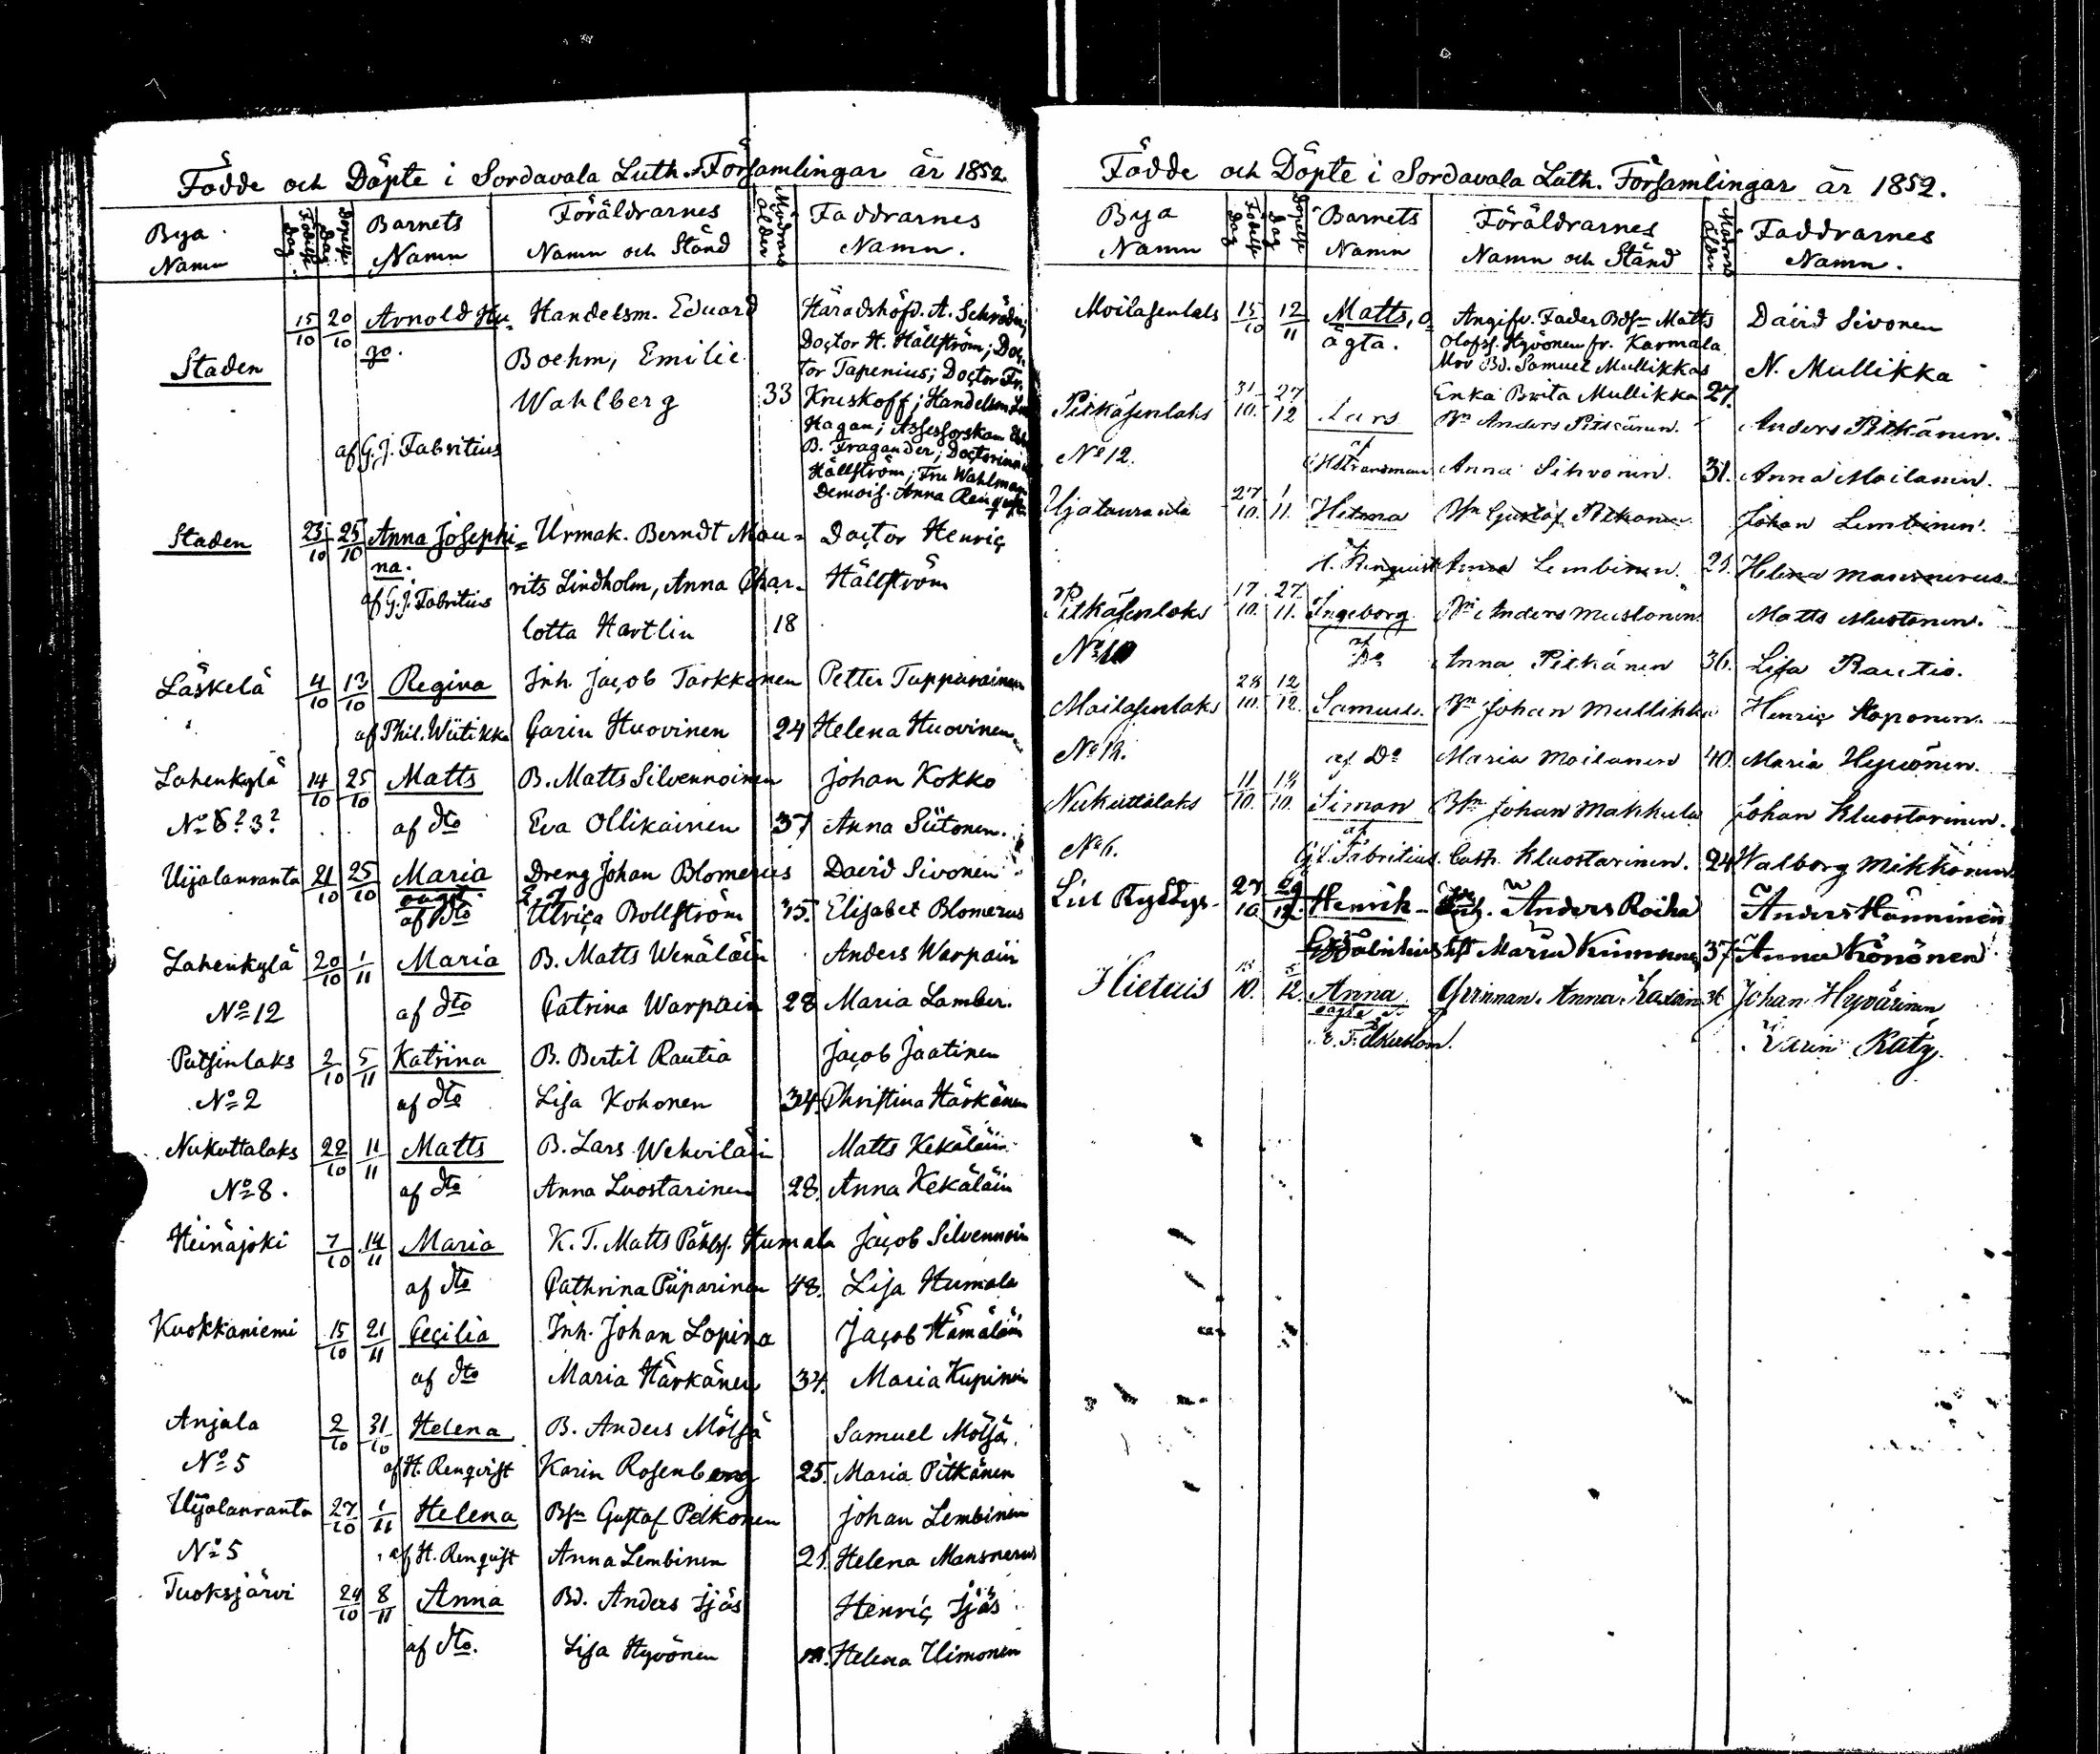 Födde och Döpte i Sordavala Luth. Församlingar år 1852.
Bya Namn | Födelse Dag | Döpelse Dag | Barnets Namn | Föräldrarnes Namn och Stånd | Modrens Ålder | Faddrarnes Namn.
15/10 20/10 Arnold Hu- Handelsm. Eduard Häradshöfd. A. Schröder;
go. Doctor H. Hällström; Doc-
Staden Boehm, Emilie tor Tapenius; Doctor Fr.
Wahlberg 33 Kruskoff; Handelsm
Hagan; Assessorskan
af G. J. Fabritius B. Fragander; Doctorinnan
Hällström; Fru Wahlman
Demois. Anna Renqvist
Staden 23/10 25/10 Anna Josephi- Urmak. Berndt Mau- Doctor Henric
na.
af G. J. Fabritius rits Lindholm, Anna Char- Hällström
lotta Hartlin 18
Läskelä 4/10 13/10 Regina Inh. Jacob Tarkkonen Petter Tappurainen
af Phil. Wiitikka Carin Huovinen 24 Helena Huovinen
Lahenkylä 14/10 25/10 Matts B. Matts Silvennoinen Johan Kokko
No 8? 3? af dto Eva Ollikainen 37 Anna Siitonen.
Uijalanranta 21/10 25/10 Maria Dreng Johan Blomerus David Sivonen
oägt.
af dto Ulrica Bollström 35. Elisabet Blomerus
Lahenkylä 20/10 1/11 Maria B. Matts Wenäläin Anders Warpain
No 12 af dto Catrina Warpain 28 Maria Lamber.
Patsinlaks 2/10 5/11 Katrina B. Bertil Rautia Jacob Jaatinen
No 2 af dto Lisa Kohonen 34. Christina Härkänen
Nukuttalaks 22/10 11/11 Matts B. Lars Wehviläin Matts Kekäläin
No 8. af dto Anna Luostarinen 28. Anna Kekäläin
Heinäjoki 7/10 14/11 Maria K. T. Matts Påhlss. Humala Jacob Silvennoin
af dto Cathrina Piiparinen 48. Lisa Humala
Kuokkaniemi 15/10 21/11 Cecilia Inh. Johan Lopina Jacob Hämäläin
af dto Maria Härkänen 34. Maria Kupinin
Anjala 2/10 31/10 Helena B. Anders Mölsä Samuel Mölsä.
No 5 af H. Renqvist Karin Rosenberg 25. Maria Pitkänen
Uijalanranta 27/10 1/11 Helena Bsn Gustaf Pelkonen Johan Lembinen
No 5 af H. Renqvist Anna Lembinen 21. Helena Mansnerus
Tuoksjärvi 24/10 8/11 Anna Bd. Anders Ijäs Henric Ijäs
af dto. Lisa Hyvönen Helena Ilimonen
Födde och Döpte i Sordavala Luth. Församlingar år 1852.
Bya Namn | Födelse Dag | Döpelse Dag | Barnets Namn | Föräldrarnes Namn och Stånd | Modrens Ålder | Faddrarnes Namn.
Moilasenlaks 15/10 12/11 Matts, o- Angifv. Fader Bdsn Matts David Sivonen
ägta. Olofss. Hyvönen fr. Karmala
Mor Bd. Samuel Mullikkas N. Mullikka
Enka Brita Mullikka 27.
Pitkäsenlaks 31/10. 27/12 Lars Bn Anders Pitkänen. Anders Pitkänen.
No 12. af Anna Sihvonin. 31. Anna Moilanin.
Uijalanranta 27/10. 1/11. Helena Bn Gustaf Johan Lembinen.
Renquist Anna Lembinen. 21. Helena Mansnerus
Pitkäsenlaks 17/10. 27/11. Ingeborg Bn Anders Mustonen Matts Mustonen.
No 10 af Do Anna Pitkänen 36. Lisa Rautio.
Moilasenlaks 28/10. 12/12. Samuel. Bn Johan Mullikka Henric Koponen.
No 12. af Do Maria Moilanen 40. Maria Hyvönen.
Nukuttalaks 11/10. Simon Bn Johan Makkula Johan Kluostarinen.
No 6. af G. J. Fabritius. Cath. Kluostarinen. 24 Walborg Mikkonen
27/10 Henrik Anders Roiha Anders Hänninen
Maria Kinnunen 37 Anna Könönen
Hietais 10. 12. Anna Qvinnan Anna 36 Johan Hyvärinen
oägta
Karin Räty.